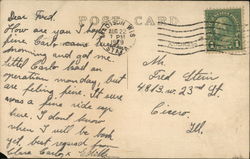 POST CARD
WIS
AUG 22
1 PM
Dear Fred.
How are you I hope
fine. Carlo came
morning and got me
little Carlo had an
operation monday, but
are feling fine. It sure
was a fine ride up
here. I don't know
when I will be back
yet, best regards from
Clara Carlo,
Mr. Fred Stein
4813 W. 23rd St
Cicero,
Ill.
1